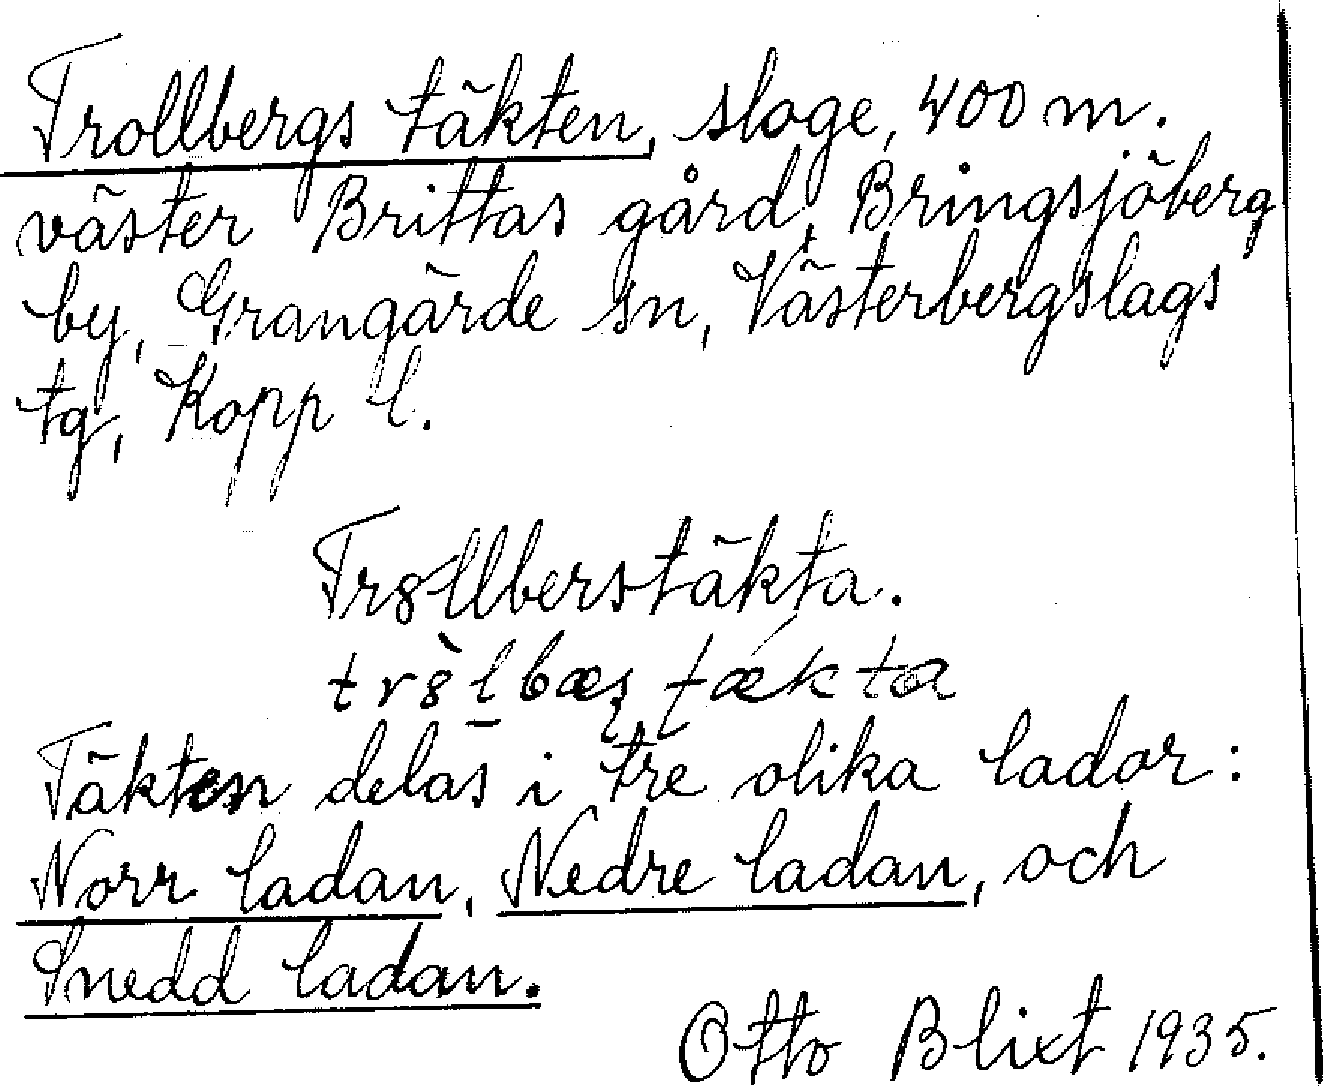 Trollbergs täkten, sloge, 400 m.
väster Brittas gård, Bringsjöberg
by, Grangärde sn, Västerbergslags
tg, Kopp l.
Tr8llberstäkta.
tr8̀l bæș tǽkta
Täkten delas i tre olika lador:
Norr ladan, Nedre ladan, och
Snedd ladan.
Otto Blixt 1935.